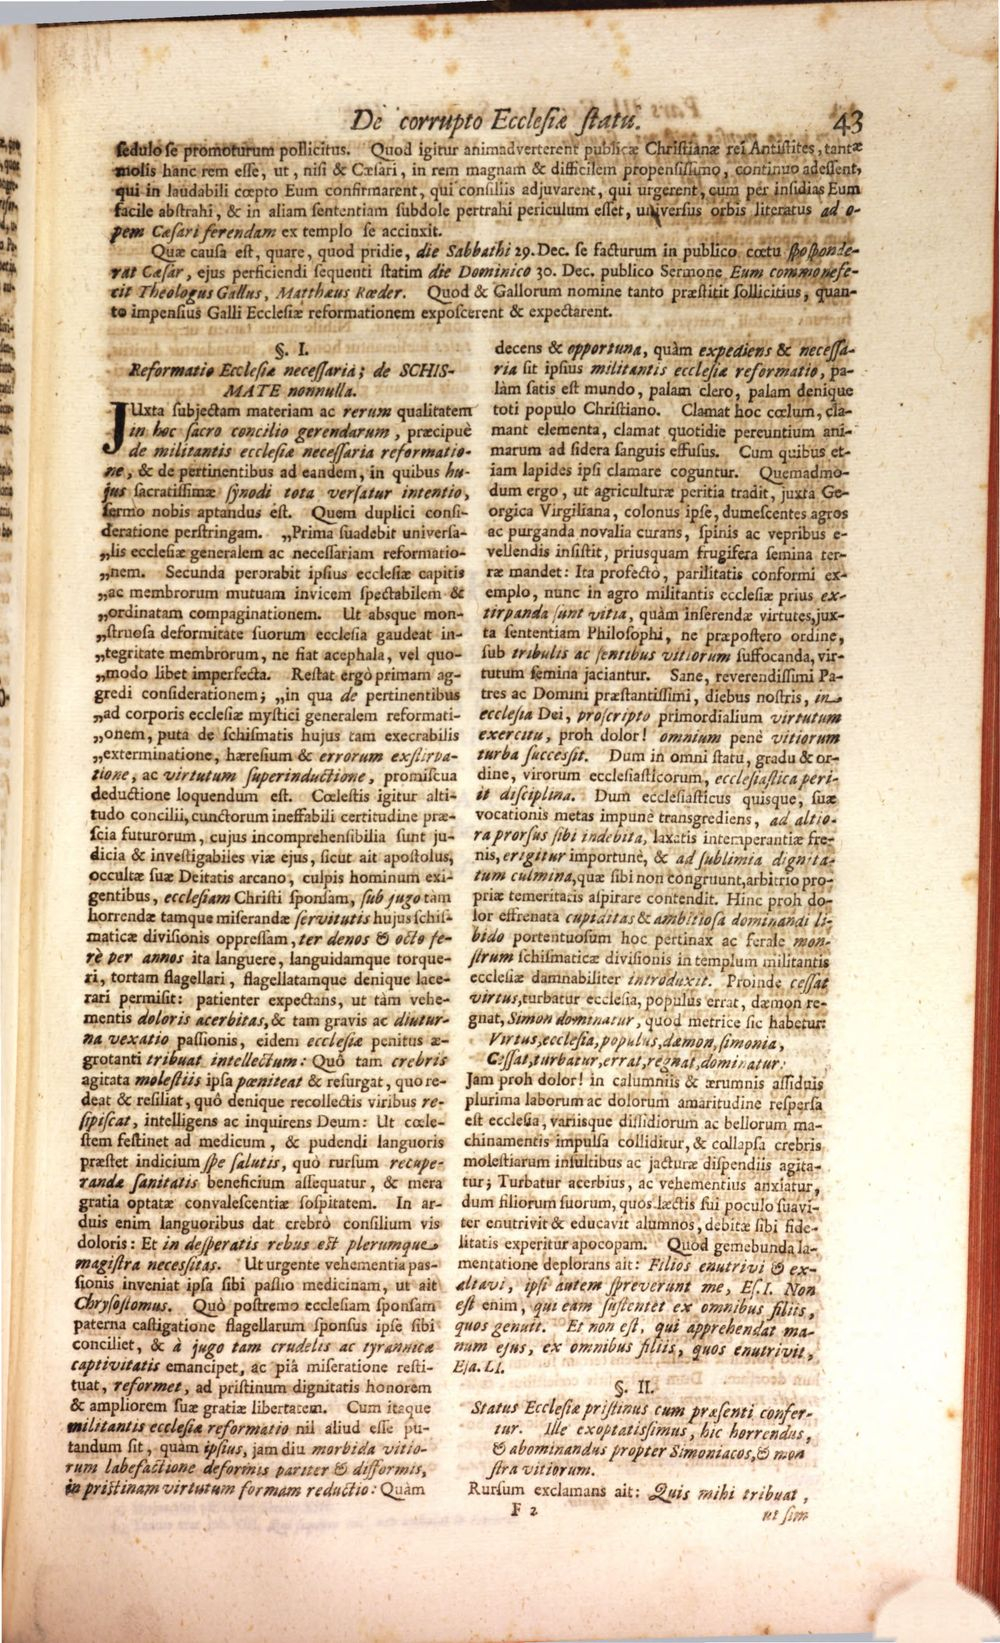 De corrupto Ecclesiæ statu. 43
sedulo se promoturum pollicitus. Quod igitur animadverterent publicæ Christianæ rei Antistites, tantæ
molis hanc rem esse, ut, nisi & Cæsari, in rem magnam & difficilem propensissimo, continuo adessent,
qui in laudabili cœpto Eum confirmarent, qui consiliis adjuvarent, qui urgerent, cum per insidias Eum
facile abstrahi, & in aliam sententiam subdole pertrahi periculum esset, universus orbis literatus ad o-
pem Cæsari ferendam ex templo se accinxit.
Quæ causa est, quare, quod pridie, die Sabbathi 29. Dec. se facturum in publico cœtu sposponde-
rat Cæsar, ejus perficiendi sequenti statim die Dominico 30. Dec. publico Sermone Eum commonefe-
cit Theologus Gallus, Matthæus Rœder. Quod & Gallorum nomine tanto præstitit sollicitius, quan-
to impensius Galli Ecclesiæ reformationem exposcerent & expectarent.
§. I.
Reformatio Ecclesiæ necessaria; de SCHIS-
MATE nonnulla.
JUxta subjectam materiam ac rerum qualitatem
in hoc sacro concilio gerendarum, præcipuè
de militantis ecclesiæ necessaria reformatio-
ne, & de pertinentibus ad eandem, in quibus hu-
jus sacratissimæ synodi tota versatur intentio,
sermo nobis aptandus est. Quem duplici consi-
deratione perstringam. „Prima suadebit universa-
„lis ecclesiæ generalem ac necessariam reformatio-
„nem. Secunda perorabit ipsius ecclesiæ capitis
„ac membrorum mutuam invicem spectabilem &
„ordinatam compaginationem. Ut absque mon-
„struosa deformitate suorum ecclesia gaudeat in-
„tegritate membrorum, ne fiat acephala, vel quo-
„modo libet imperfecta. Restat ergò primam ag-
gredi considerationem; „in qua de pertinentibus
„ad corporis ecclesiæ mystici generalem reformati-
„onem, puta de schismatis hujus tam execrabilis
„exterminatione, hæresium & errorum exstirpa-
tione, ac virtutum superinductione, promiscua
deductione loquendum est. Cœlestis igitur alti-
tudo concilii, cunctorum ineffabili certitudine præ-
scia futurorum, cujus incomprehensibilia sunt ju-
dicia & investigabiles viæ ejus, sicut ait apostolus,
occultæ suæ Deitatis arcano, culpis hominum exi-
gentibus, ecclesiam Christi sponsam, sub jugo tàm
horrendæ tamque miserandæ servitutis hujus schis-
maticæ divisionis oppressam, ter denos & octo fe-
rè per annos ita languere, languidamque torque-
ri, tortam flagellari, flagellatamque denique lace-
rari permisit: patienter expectans, ut tàm vehe-
mentis doloris acerbitas, & tam gravis ac diutur-
na vexatio passionis, eidem ecclesiæ penitus æ-
grotanti tribuat intellectum: Quô tam crebris
agitata molestiis ipsa pœniteat & resurgat, quo re-
deat & resiliat, quô denique recollectis viribus re-
sipiscat, intelligens ac inquirens Deum: Ut cœle-
stem festinet ad medicum, & pudendi languoris
præstet indicium spe salutis, quò rursum recupe-
randæ sanitatis beneficium assequatur, & mera
gratia optatæ convalescentiæ sospitatem. In ar-
duis enim languoribus dat crebrò consilium vis
doloris: Et in desperatis rebus est plerumque
magistra necessitas. Ut urgente vehementia pas-
sionis inveniat ipsa sibi passio medicinam, ut ait
Chrysostomus. Quò postremo ecclesiam sponsam
paterna castigatione flagellarum sponsus ipse sibi
conciliet, & à jugo tam crudelis ac tyrannicæ
captivitatis emancipet, ac piâ miseratione resti-
tuat, reformet, ad pristinum dignitatis honorem
& ampliorem suæ gratiæ libertatem. Cum itaque
militantis ecclesiæ reformatio nil aliud esse pu-
tandum sit, quàm ipsius, jam diu morbida vitio-
rum labefactione deformis pariter & difformis,
in pristinam virtutum formam reductio: Quàm
decens & opportuna, quàm expediens & necessa-
ria sit ipsius militantis ecclesiæ reformatio, pa-
làm satis est mundo, palam clero, palam denique
toti populo Christiano. Clamat hoc cœlum, cla-
mant elementa, clamat quotidie pereuntium ani-
marum ad sidera sanguis effusus. Cum quibus et-
iam lapides ipsi clamare coguntur. Quemadmo-
dum ergo, ut agriculturæ peritia tradit, juxta Ge-
orgica Virgiliana, colonus ipse, dumescentes agros
ac purganda novalia curans, spinis ac vepribus e-
vellendis insistit, priusquam frugifera semina ter-
ræ mandet: Ita profectò, parilitatis conformi ex-
emplo, nunc in agro militantis ecclesiæ prius ex-
tirpanda sunt vitia, quàm inserendæ virtutes, jux-
ta sententiam Philosophi, ne præpostero ordine,
sub tribulis ac sentibus vitiorum suffocanda, vir-
tutum semina jaciantur. Sane, reverendissimi Pa-
tres ac Domini præstantissimi, diebus nostris, in
ecclesia Dei, proscripto primordialium virtutum
exercitu, proh dolor! omnium penè vitiorum
turba successit. Dum in omni statu, gradu & or-
dine, virorum ecclesiasticorum, ecclesiastica peri-
it disciplina. Dum ecclesiasticus quisque, suæ
vocationis metas impunè transgrediens, ad altio-
ra prorsus sibi indebita, laxatis intemperantiæ fre-
nis, erigitur importunè, & ad sublimia dignita-
tum culmina, quæ sibi non congruunt, arbitrio pro-
priæ temeritatis aspirare contendit. Hinc proh do-
lor effrenata cupiditas & ambitiosa dominandi li-
bido portentuosum hoc pertinax ac ferale mon-
strum schismaticæ divisionis in templum militantis
ecclesiæ damnabiliter introduxit. Proinde cessat
virtus, turbatur ecclesia, populus errat, dæmon re-
gnat, Simon dominatur, quod metrice sic habetur:
Virtus, ecclesia, populus, dæmon, simonia,
Cessat, turbatur, errat, regnat, dominatur.
Jam proh dolor! in calumniis & ærumnis assiduis
plurima laborum ac dolorum amaritudine respersa
est ecclesia, variisque dissidiorum ac bellorum ma-
chinamentis impulsa colliditur, & collapsa crebris
molestiarum insultibus ac jacturæ dispendiis agita-
tur; Turbatur acerbius, ac vehementius anxiatur,
dum filiorum suorum, quos lactis sui poculo suavi-
ter enutrivit & educavit alumnos, debitæ sibi fide-
litatis experitur apocopam. Quod gemebunda la-
mentatione deplorans ait: Filios enutrivi & ex-
altavi, ipsi autem spreverunt me, Es. I. Non
est enim, qui eam sustentet ex omnibus filiis,
quos genuit. Et non est, qui apprehendat ma-
num ejus, ex omnibus filiis, quos enutrivit,
Esa. LI.
§. II.
Status Ecclesiæ pristinus cum præsenti confer-
tur. Ille exoptatissimus, hic horrendus,
& abominandus propter Simoniacos, & mon
stra vitiorum.
Rursum exclamans ait: Quis mihi tribuat,
F 2 ut sim